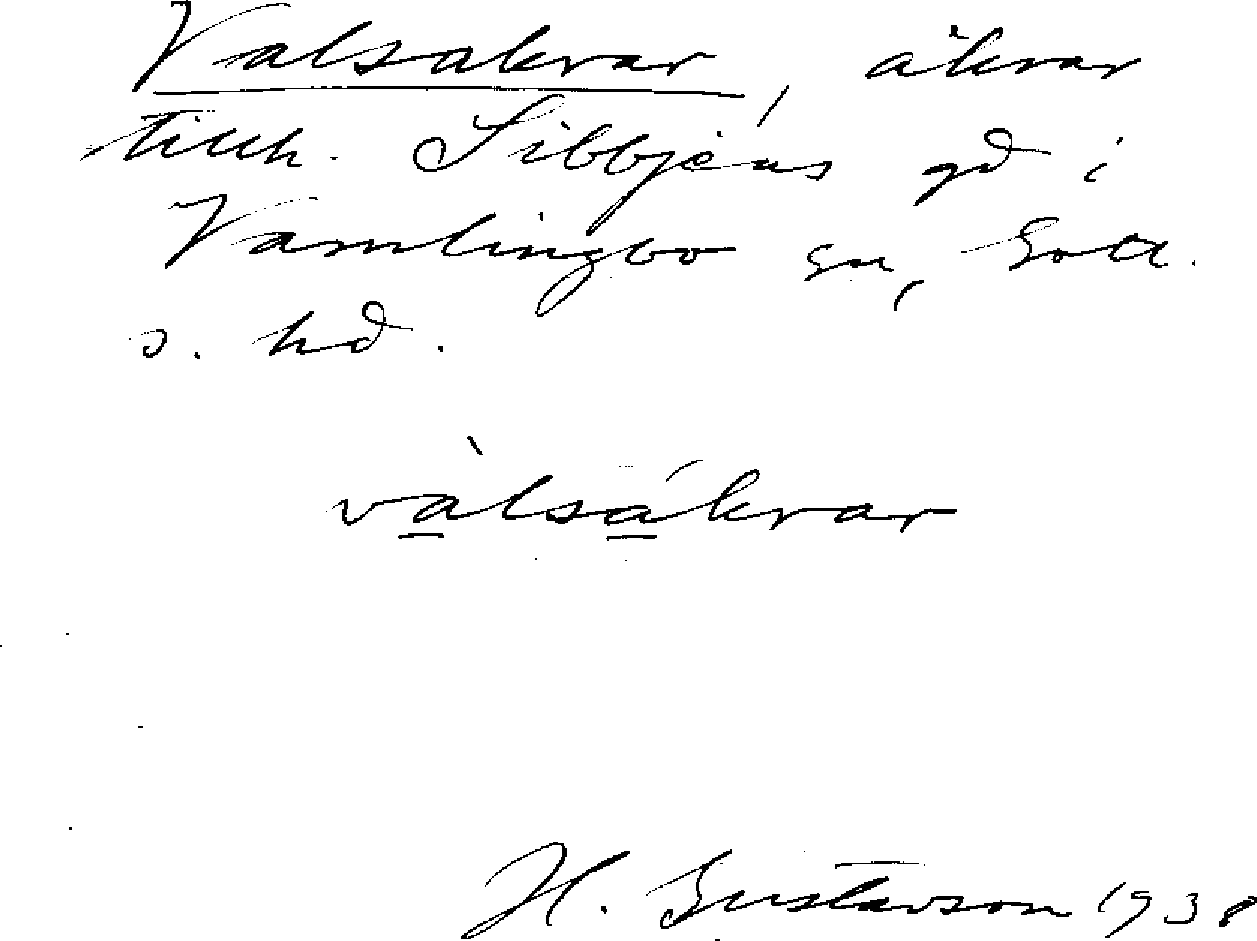 Valsakrar, åkrar
tillh. Sibbjäns gd i
Vamlingbo sn, Gotl.
s. hd.
và̲lsá̲krar
H. Gustavson 1938